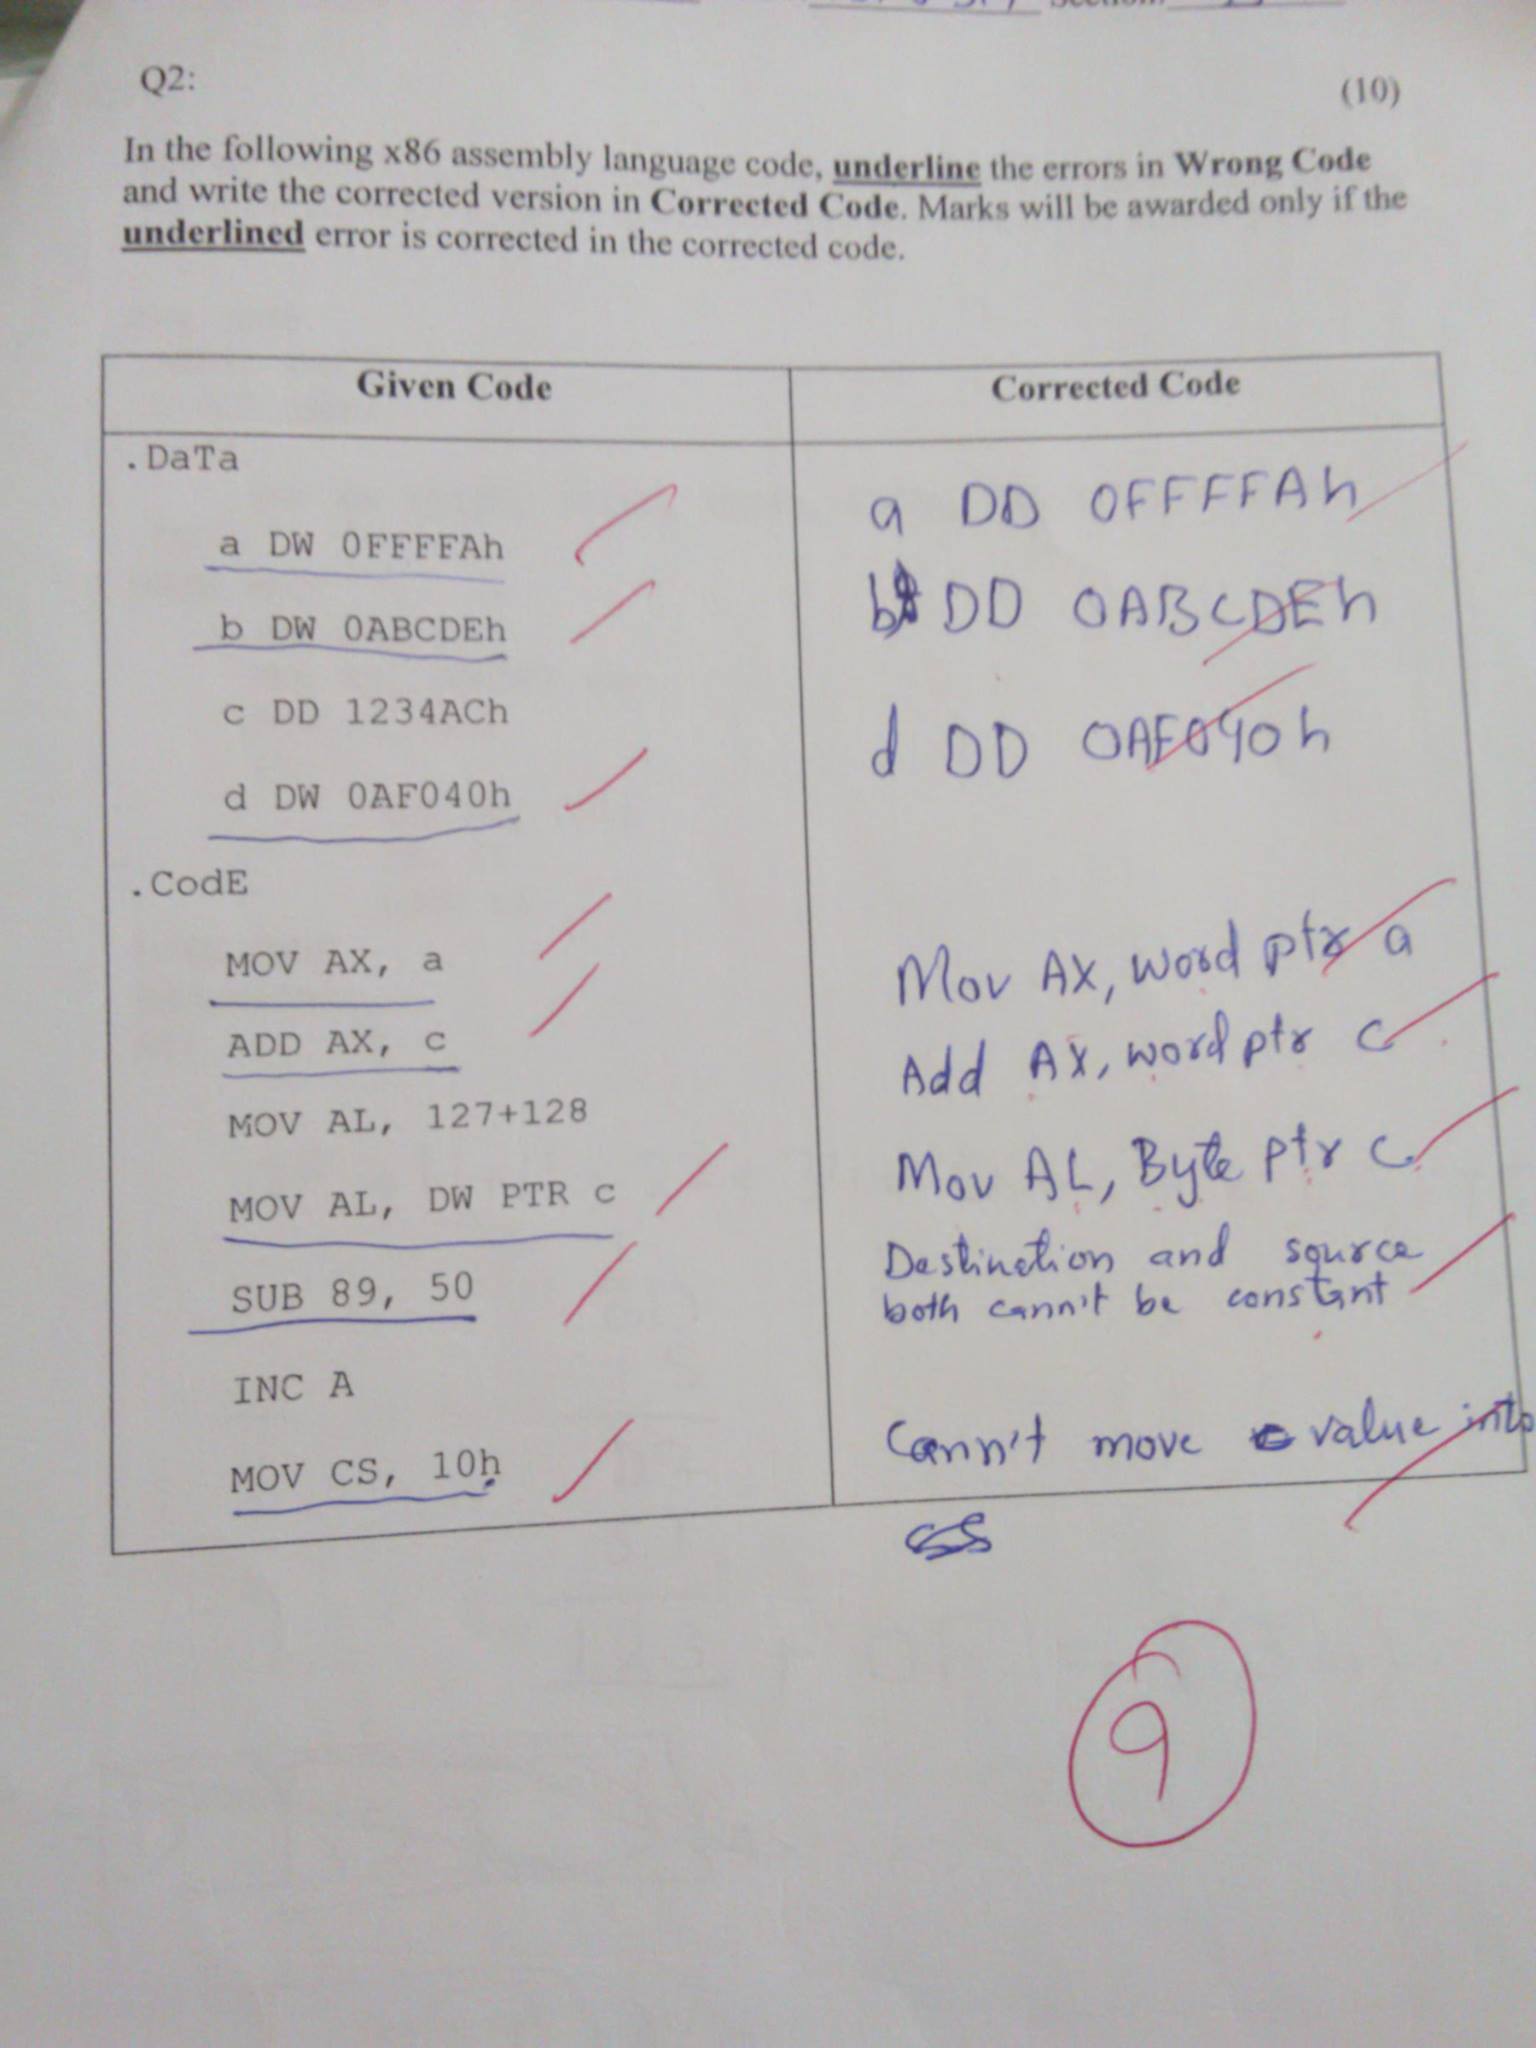 Q2:
(10)
In the following x86 assembly language code, underline the errors in Wrong Code
and write the corrected version in Corrected Code. Marks will be awarded only if the
underlined error is corrected in the corrected code.
Given Code
Corrected Code
.DaTa
a DW 0FFFFAh
a DD 0FFFFAh
b DW 0ABCDEh
b DD 0ABCDEh
c DD 1234ACh
d DW 0AF040h
d DD 0AF040h
.CodE
MOV AX, a
Mov AX, word ptr a
ADD AX, c
Add AX, word ptr c
MOV AL, 127+128
MOV AL, DW PTR c
Mov AL, Byte ptr c
SUB 89, 50
Destination and source
both cann't be constant
INC A
MOV CS, 10h
Cann't move value into
CS
9